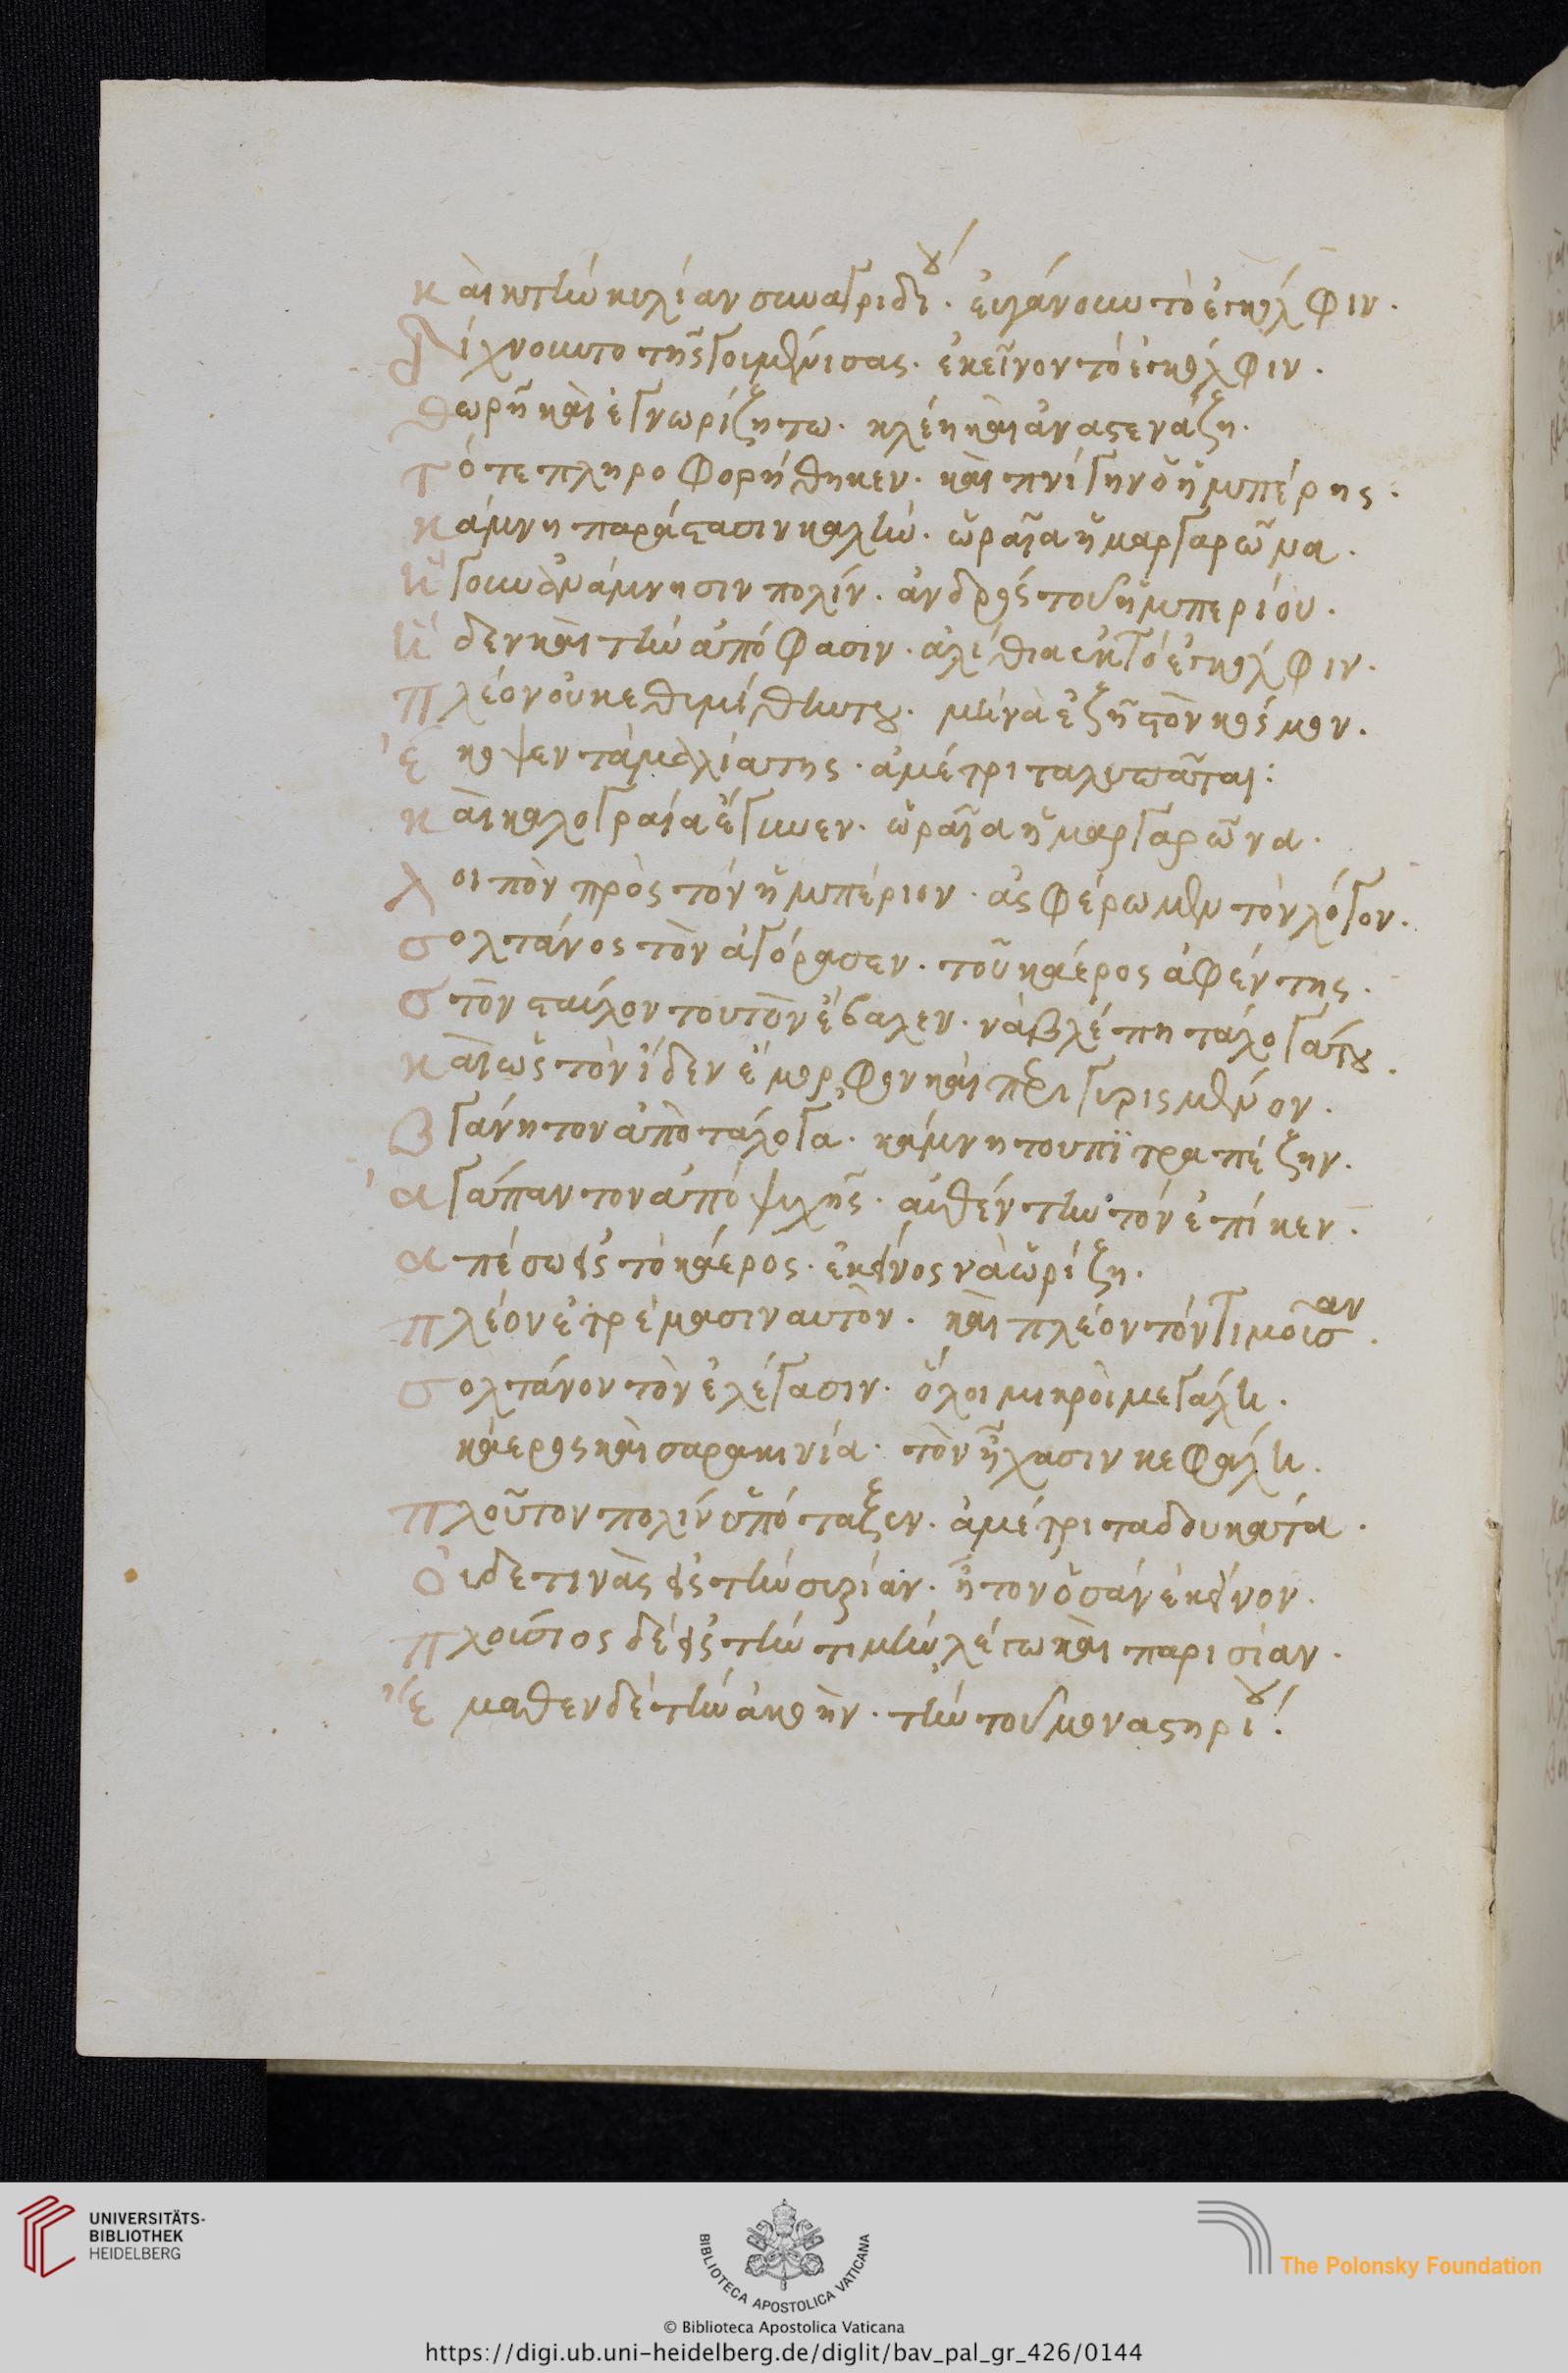 κὰι κτὴν κιλίαν σκυαγριδίου. ἐυγάνουν τὸ ἐγκόλφιν.
δίχνουντο τῆς γοιμένισας. ἐκεῖνον τὸ ἐγκόλφιν.
θωρῆ κὰι ἐγνωρίζητω. κλέη κὰι ἀναστενάζη.
τότε πληροφορήθηκεν. κὰι πνίγην ὁ ἠμπέρης.
κάμνη παράστασιν καλὴν. ὡραῖα ἡ μαργαρῶνα.
ἤγουν ἀνάμνησιν πολίν. ἀνδρός τοῦ ἠμπερίου.
ἤδεν κὰι τὴν ἀπόφασιν. ἀλίθια ἐκ τὸ ἐγκόλφιν.
πλέον οὐκ εθιμίθην του. μὴνὰ ἐζῆ στὸν κόσμον.
ἔκοψεν τὰ μαλία της. ἀμέτριτα λυπᾶται:
κὰι καλογραία ἔγινεν. ὡραῖα ἡ μαργαρῶνα.
λοιπὸν πρὸς τὸν ἠμπέριον. ἀς φέρωμεν τὸν λόγον.
σολτάνος τὸν ἀγόρασεν. τοῦ κάερος ἀφέντης.
στὸν σταύλον του τὸν ἔβαλεν. νὰ βλέπη τάλογά του.
κὰι ὡς τὸν ἴδεν ἔμορφον κὰι περιγυρισμένον.
βγάνη τον ἀπὸ τάλογα. κάμνη τον πιτραπέζην.
ἀγάπαν τον ἀπὸ ψιχῆς. αὐθέντην τὸν ἐπίκεν.
απέσω εἰς τὸ κάερος. ἐκείνος νὰ ὡρίζη.
πλέον ἐτρέμασιν αυτὸν. κὰι πλέον τόν τιμοῖσαν.
σολτάνον τὸν ἐλέγασιν. ὅλοι μικρὸι μεγάλη.
κάερος κὰι σαρακινία. τὸν ἦχασιν κεφάλη.
πλοῦτον πολίν ὑπόταξεν. ἀμέτριτα δουκάτα.
ὀιδε τινὰς εἰς τὴν συρίαν. ἦτον ὁσάν ἐκείνον.
πλοίσιος δέ εἰς τὴν τιμὴν λέγω κὰι παρισίαν.
ἔμαθεν δέ τὴν ἀκοὴν. τὴν τοῦ μοναστηρίου!
UNIVERSITÄTS-
BIBLIOTHEK
HEIDELBERG
BIBLIOTECA APOSTOLICA VATICANA
The Polonsky Foundation
© Biblioteca Apostolica Vaticana
https://digi.ub.uni-heidelberg.de/diglit/bav_pal_gr_426/0144